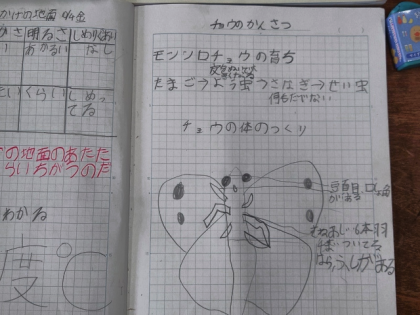 かけの地面
明るさ
しめりぐあい
あかるい
なし
くらい
しめっ
てる
の地面のあたた
らいちがうのだ
わかる
度℃
チョウのかんさつ
モンシロチョウの育ち
たまご→よう虫→さなぎ→せい虫
何もたべない
チョウの体のつくり
頭 目 口
がある
むねあし6本羽
ついてる
はら ふしがある